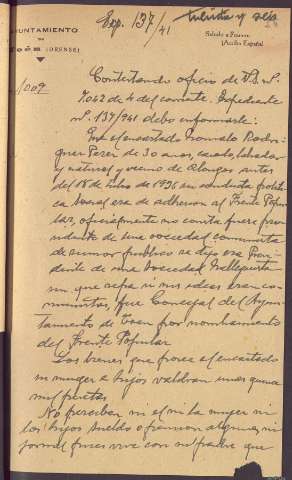 Exp. 137/41
treinta y seis
AYUNTAMIENTO
DE
TOÉN (ORENSE)
Saludo a Franco:
¡Arriba España!
1009
Contestando oficio de V.S. nº.
7042 de 4 del corriente. Expediente
nº. 137/941 debo informarle:
Que el encartado Gonzalo Rodri-
guez Perez de 30 años, casado, labrador
y natural y vecino de Alongos antes
del 18 de Julio de 1936 su conducta politi-
ca social era de adhesion al Frente Popu-
lar, oficialmente no consta fuere presi-
dente de una sociedad comunista
de rumor publico se dijo era Presi-
dente de una Sociedad Galleguista
sin que sepa si sus ideas eran co-
munistas, fue Concejal del Ayun-
tamiento de Toen por nombramiento
del Frente Popular
Los bienes que posee el encartado
su muger e hijos valdran unas quince
mil pesetas
No perciben ni el ni la muger ni
los hijos sueldo o pension alguna, ni
jornal pues vive con su padre que